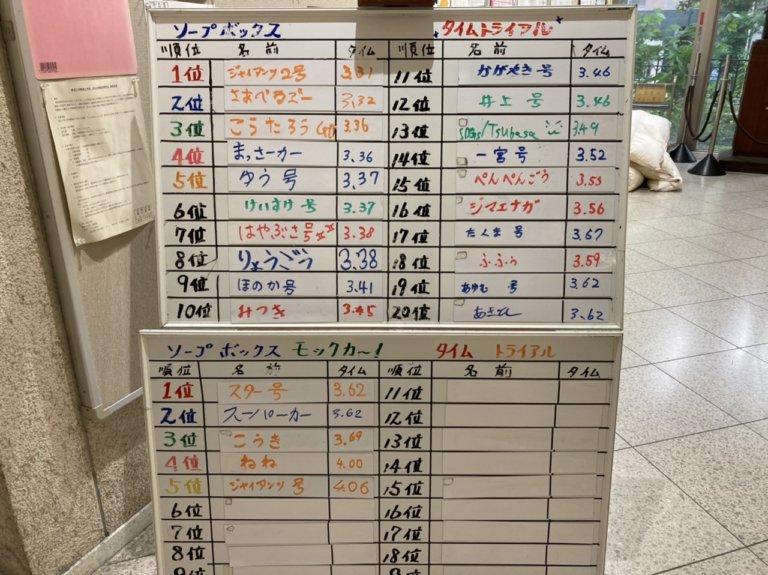 ソープボックス タイムトライアル
順位 名前 タイム 順位 名前 タイム
1位 ジャイアンツ2号 3.31 11位 かがやき号 3.46
2位 さあべるズー 3.32 12位 井上号 3.46
3位 こうたろう 3.36 13位 SDGs/Tsubasa 3.49
4位 まっさーカー 3.36 14位 一宮号 3.52
5位 ゆう号 3.37 15位 ぺんぺんごう 3.55
6位 けいすけ号 3.37 16位 シマエナガ 3.56
7位 はやぶさ号 3.38 17位 たくま号 3.57
8位 りょうごう 3.38 18位 ふふぅ 3.59
9位 ほのか号 3.41 19位 あゆむ号 3.62
10位 みつき 3.45 20位 3.62
ソープボックス モックカー! タイムトライアル
順位 名前 タイム 順位 名前 タイム
1位 スター号 3.62 11位
2位 スーパーカー 3.62 12位
3位 こうき 3.69 13位
4位 ねね 4.00 14位
5位 ジャイアンツ号 4.06 15位
6位 16位
7位 17位
8位 18位